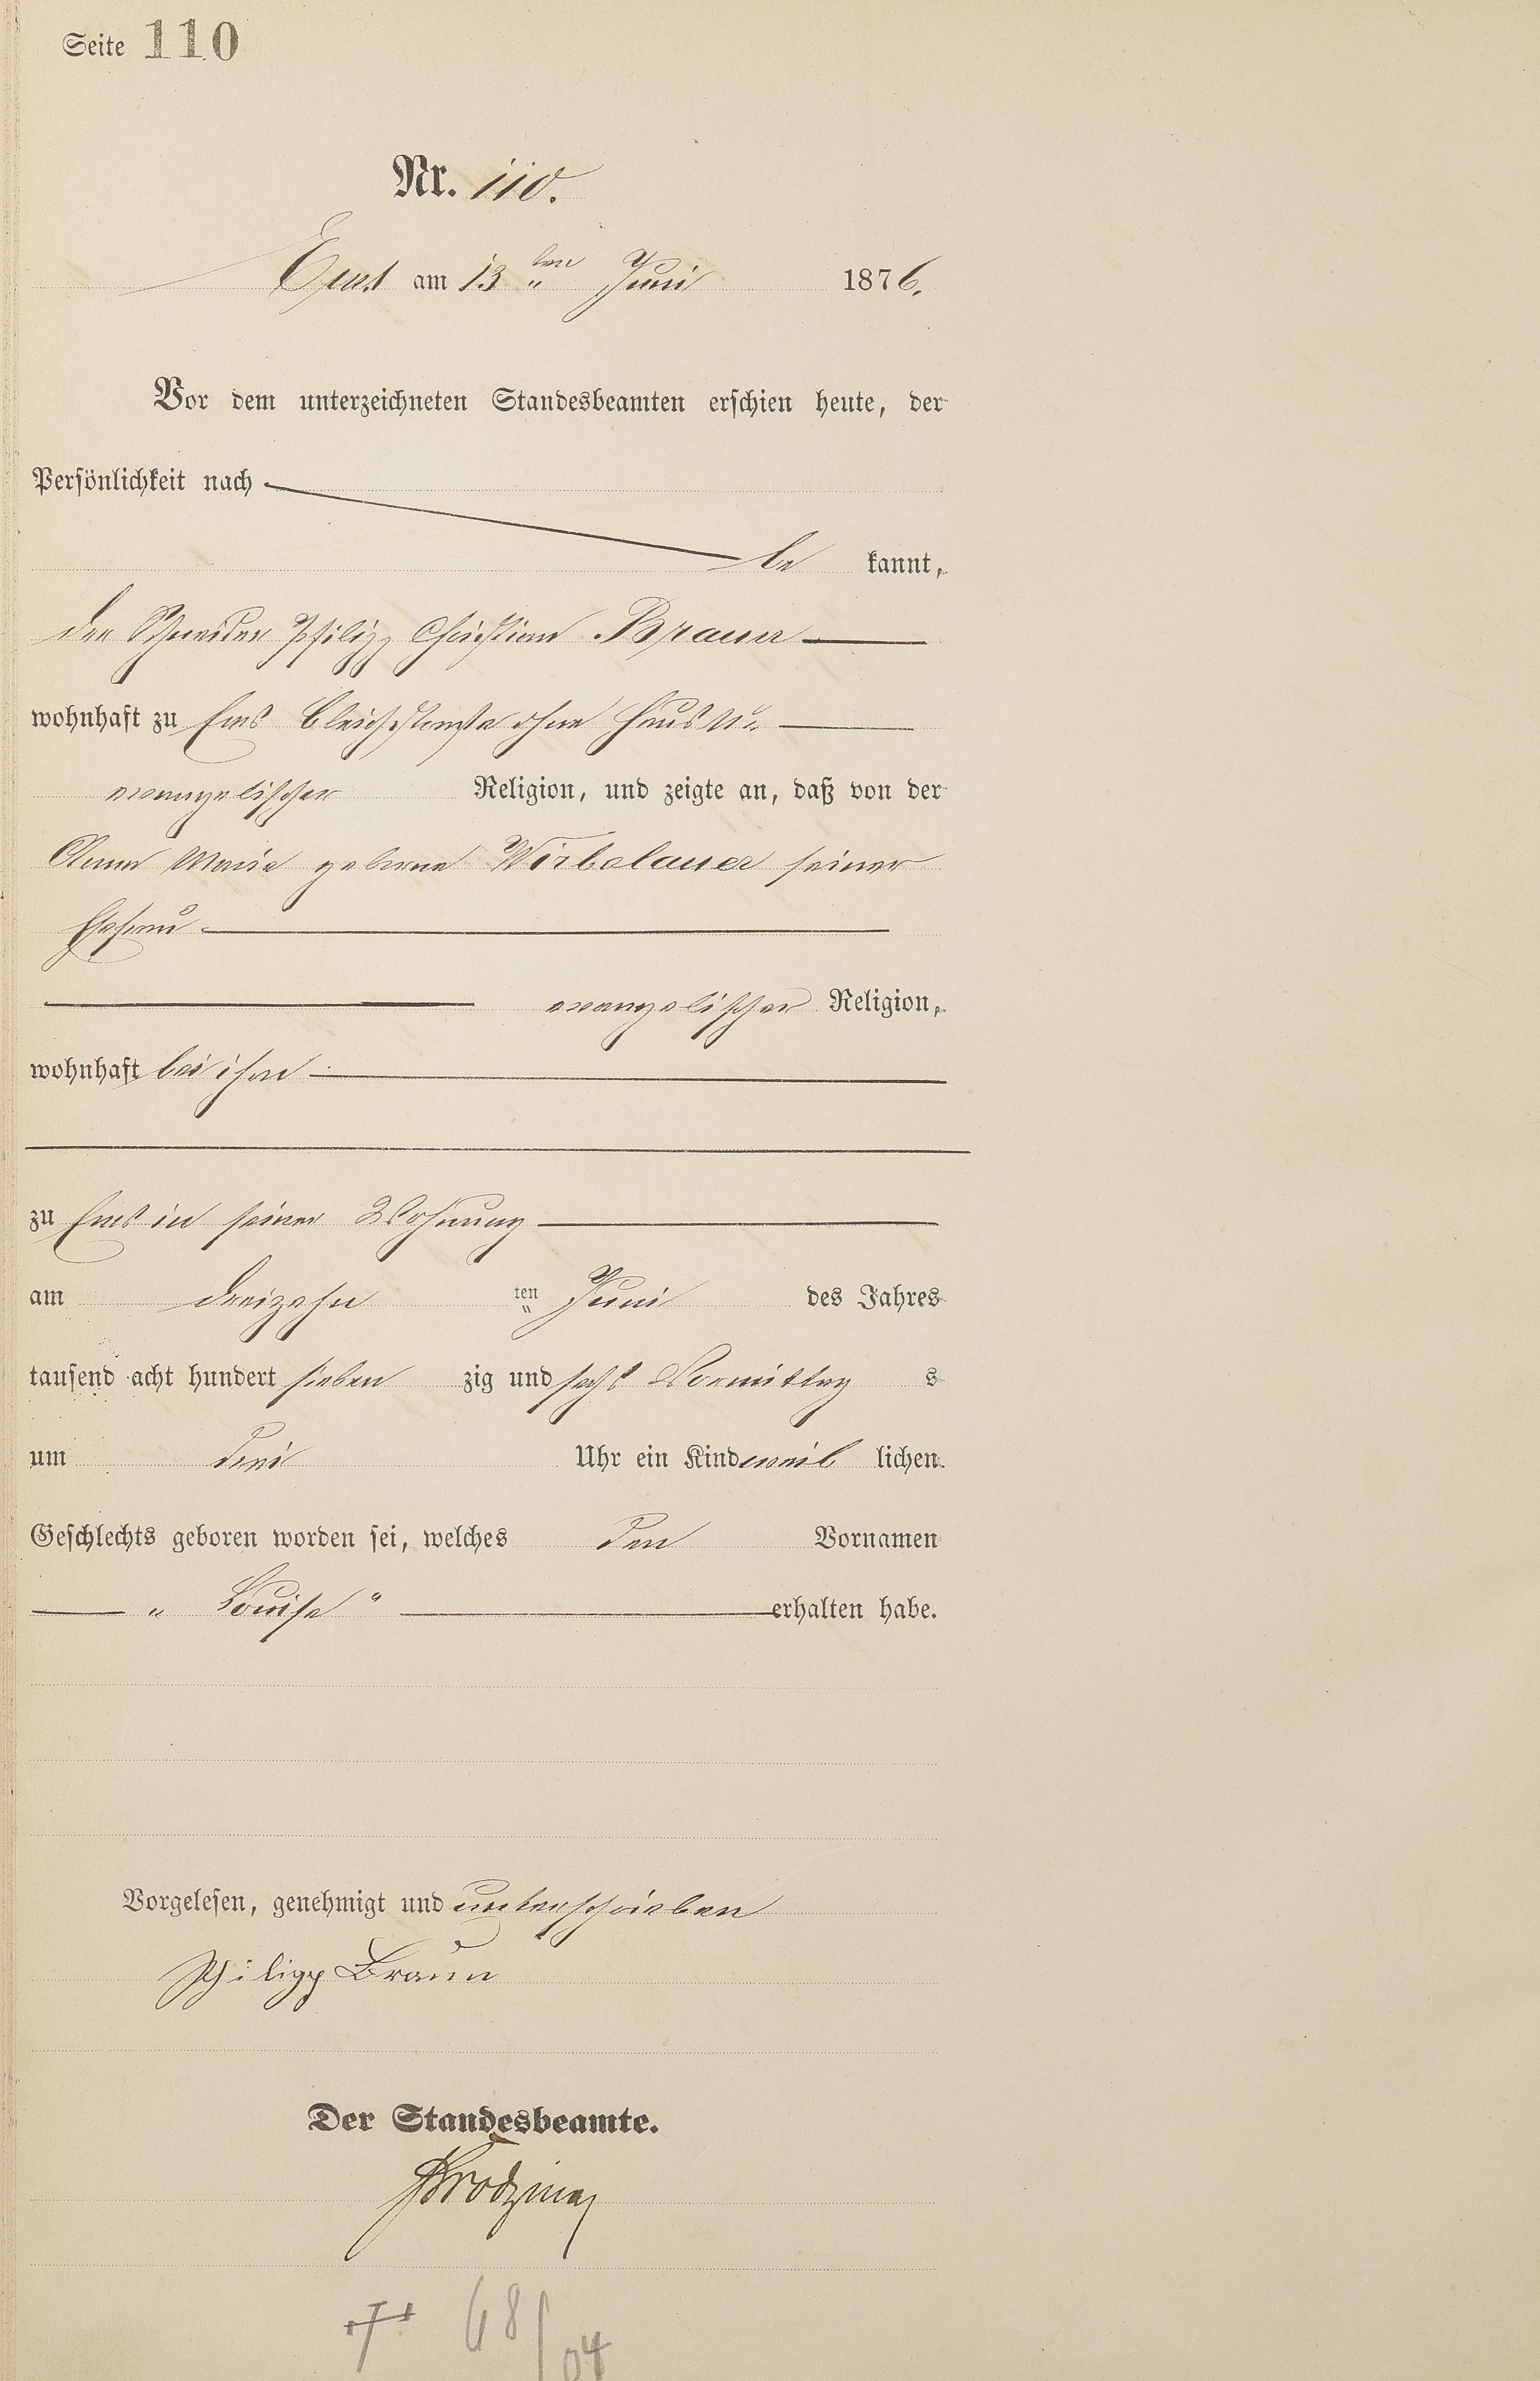 Seite 110
Nr. 110.
Ems am 13 ten Juni 1876.
Vor dem unterzeichneten Standesbeamten erschien heute, der
Persönlichkeit nach
be kannt,
der Schneider Philipp Christian Braun
wohnhaft zu Ems Bleichstraße ohne Haus Nr.
evangelischer Religion, und zeigte an, daß von der
Anna Maria geborne Wirbelauer seiner
Ehefrau
evangelischer Religion,
wohnhaft bei ihm
zu Ems in seiner Wohnung
am dreizehn ten Juni des Jahres
tausend acht hundert sieben zig und sechs Vormittag s
um drei Uhr ein Kind weib lichen
Geschlechts geboren worden sei, welches den Vornamen
" Louise " erhalten habe.
Vorgelesen, genehmigt und unterschrieben
Philipp Braun
Der Standesbeamte.
68/04